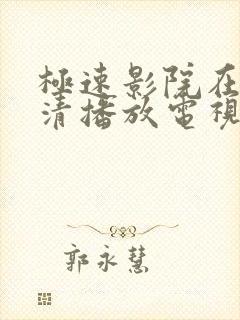 極速影院在
清播放電視
郭永慧